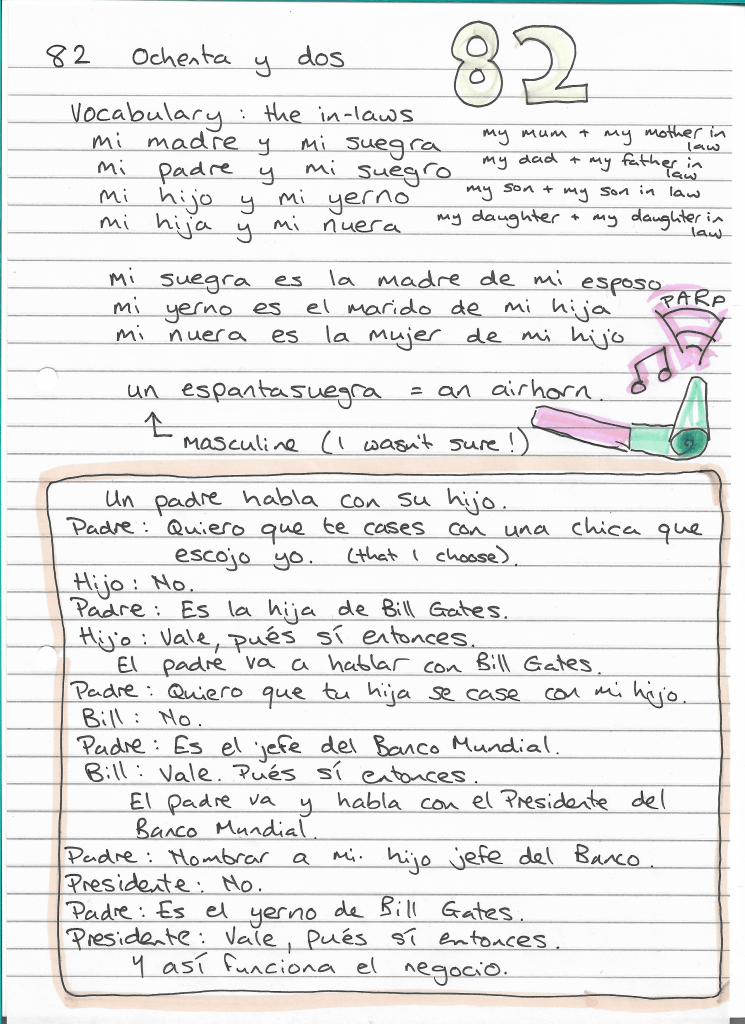 82 Ochenta y dos
82
Vocabulary : the in-laws
mi madre y mi suegra my mum + my mother in law
mi padre y mi suegro my dad + my father in law
mi hijo y mi yerno my son + my son in law
mi hija y mi nuera my daughter + my daughter in law
mi suegra es la madre de mi esposo
mi yerno es el marido de mi hija
mi nuera es la mujer de mi hijo
PARP
un espantasuegra = an airhorn.
masculine (I wasn't sure!)
Un padre habla con su hijo.
Padre: Quiero que te cases con una chica que
escojo yo. (that I choose).
Hijo: No.
Padre: Es la hija de Bill Gates.
Hijo: Vale, pués sí entonces.
El padre va a hablar con Bill Gates.
Padre: Quiero que tu hija se case con mi hijo.
Bill: No.
Padre: Es el jefe del Banco Mundial.
Bill: Vale. Pués sí entonces.
El padre va y habla con el Presidente del
Banco Mundial.
Padre: Nombrar a mi hijo jefe del Banco.
Presidente: No.
Padre: Es el yerno de Bill Gates.
Presidente: Vale, pués sí entonces.
Y así funciona el negocio.